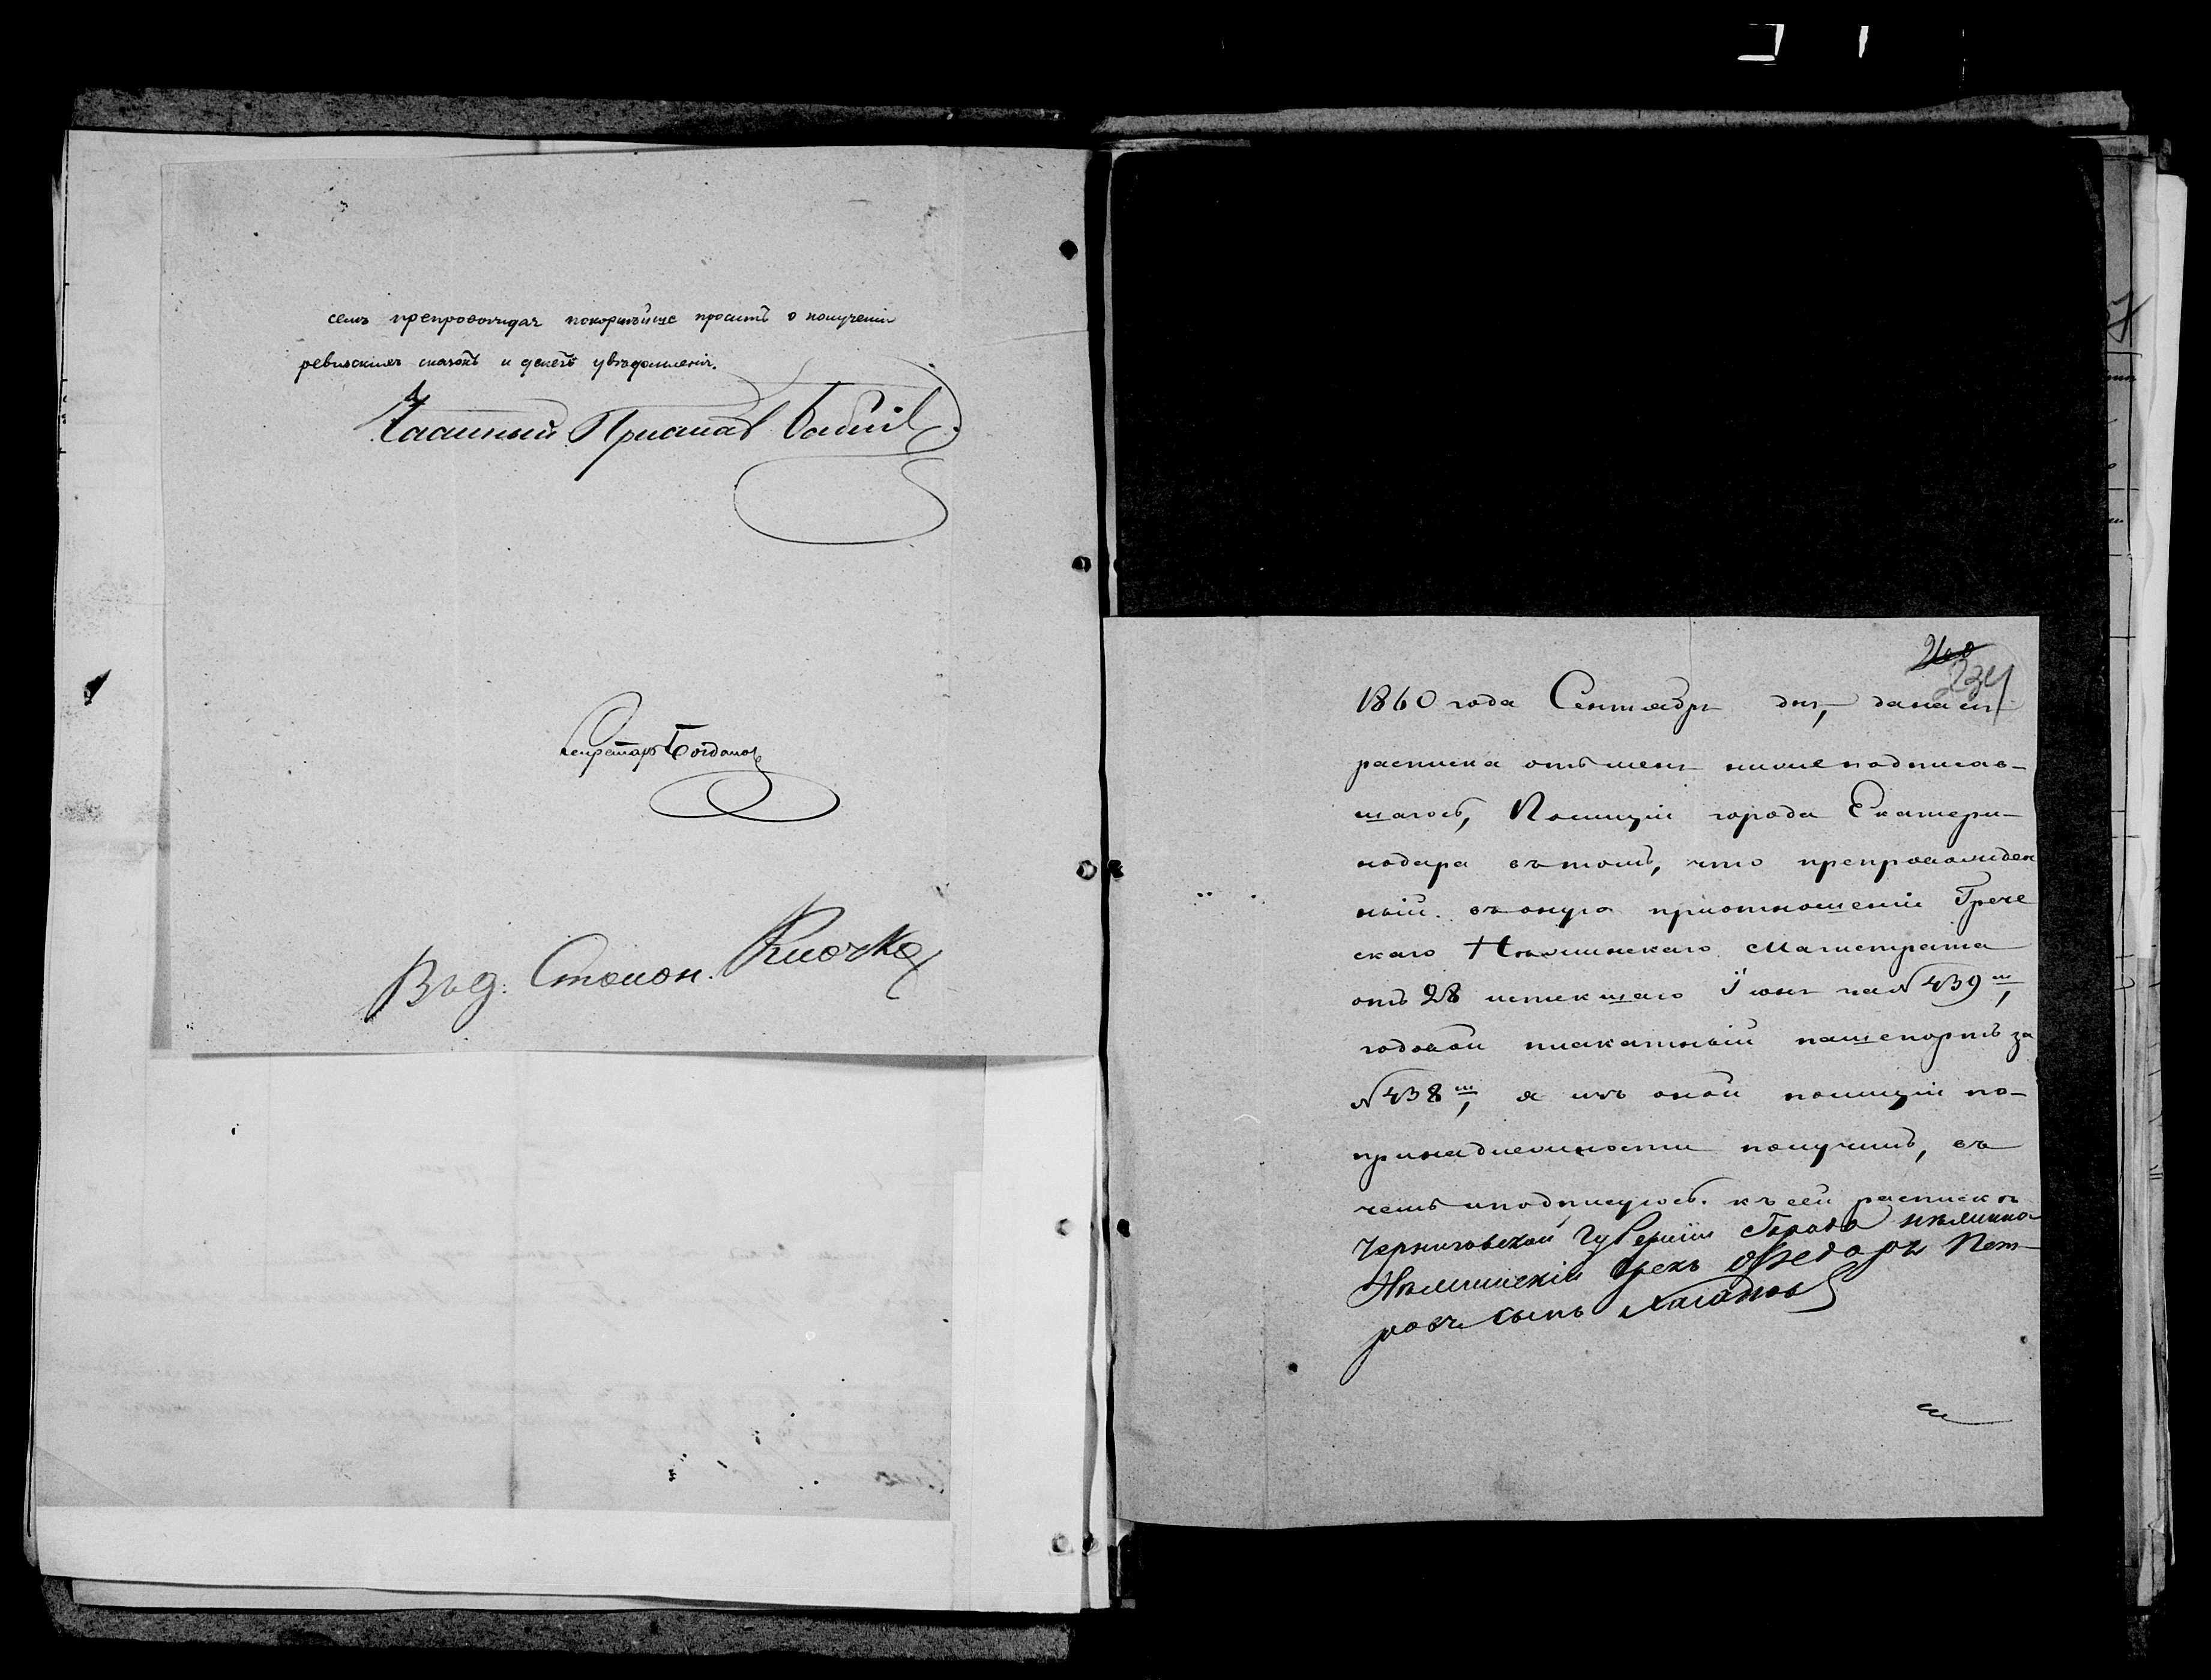 семъ препровождая покорнѣйше проситъ о полученіи
ревизскихъ сказокъ и денегъ увѣдомленія.
Частный Приставъ Бабичъ
Секретарь Богдановъ
Вѣд. Столон. Клочко
260
234
1860 года Сентября дня, дана сія
расписка отъ меня нижеподписав-
шагось, Полиціи города Екатери-
нодара въ томъ, что препровожден
ный въ оную при отношеніи Грече
скаго Нѣжинскаго Магистрата
отъ 28 истекшаго Іюня за № 439м,
годовой плакатный пашепортъ за
№ 438м, я изъ оной полиціи по-
принадлежности получилъ, въ
чемъ и подписуюсь. къ сей расписки
Черниговской Губерніи Города нежина
Нѣжинскій Грекъ Федоръ Пет-
ровъ сынъ